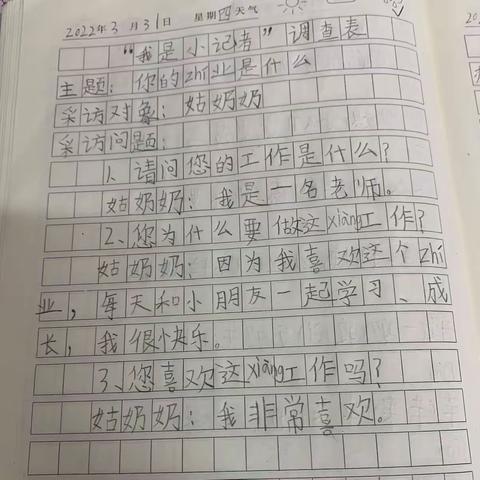 2022年3月31日 星期四天气
“我是小记者”调查表
主题：你的zhí业是什么
采访对象：姑奶奶
采访问题：
1、请问您的工作是什么？
姑奶奶：我是一名老师。
2、您为什么要做这xiàng工作？
姑奶奶：因为我喜欢这个zhí
业，每天和小朋友一起学习、成
长，我很快乐。
3、您喜欢这xiàng工作吗？
姑奶奶：我非常喜欢。